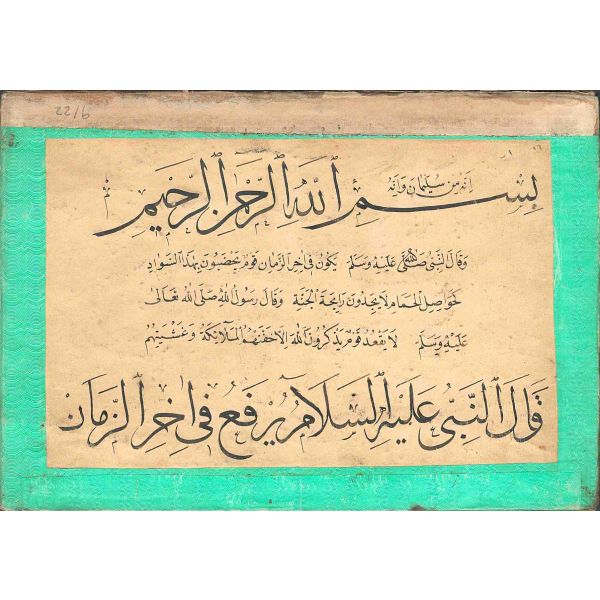 22/6
انه من سليمان وانه
بسم الله الرحمن الرحيم
وقال النبى صلى الله عليه وسلم يكون فى اخر الزمان قوم يخضبون بهذا السواد
كحواصل الحمام لا يجدون رايحة الجنة وقال رسول الله صلى الله تعالى
عليه وسلم لا يقعد قوم يذكرون الله الا حفتهم الملائكة وغشيتهم
قال النبى عليه السلام يرفع فى اخر الزمان